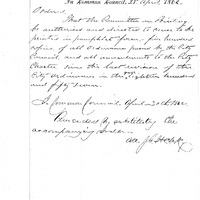 In Common Council, 25 April 1862
Ordered,
That the Committee on Printing
be authorized and directed to cause to be
printed in pamphlet form, five hundred
copies of all Ordinances passed by the City
Council, and all amendments to the City
Charter since the last revision of the
City Ordinances in the Eighteen hundred
and fifty seven.
In Common Council April 1862
Amended by substituting the
accompanying order.